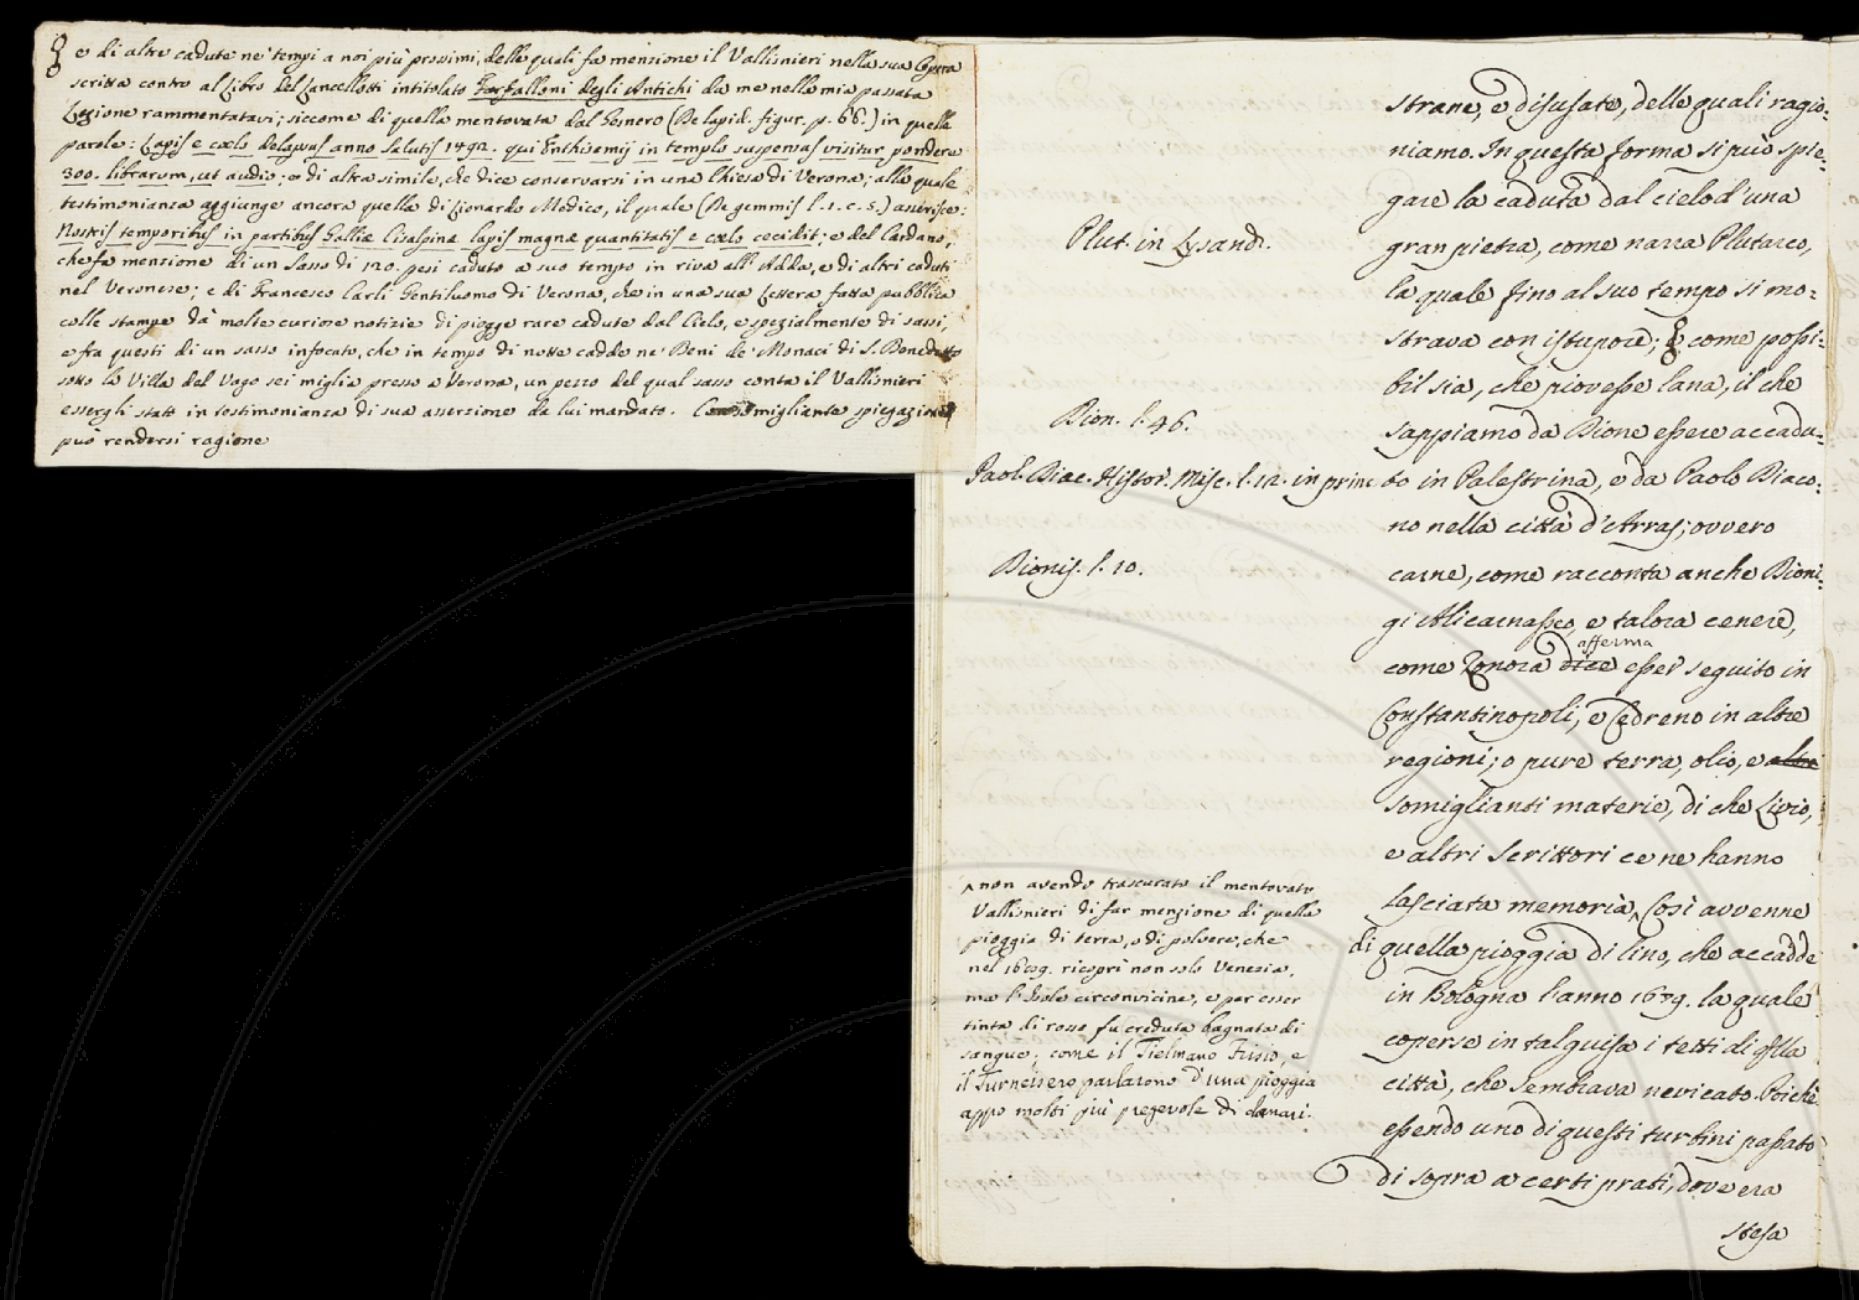 e di altre cadute ne' tempi a noi più prossimi, delle quali fa menzione il Vallisnieri nella sua Opera
scritta contro al Libro del Lancellotti intitolato Farfalloni degli Antichi da me nella mia passata
Lezione rammentatavi; siccome di quella mentovata dal Gesnero (De lapid. figur. p. 66.) in quelle
parole: Lapis e cœlo delapsus anno salutis 1492. qui Enthisemij in templo suspensus visitur pondere
300. librarum, ut audio; e di altra simile, che dice conservarsi in una Chiesa di Verona; alla quale
testimonianza aggiunge ancora quella di Lionardo Medico, il quale (De gemmis l. 1. c. 5.) asserisce:
Nostris temporibus in partibus Galliæ Cisalpinæ lapis magnæ quantitatis e cœlo cecidit; e del Cardano,
che fa menzione di un sasso di 120. pesi caduto a suo tempo in riva all' Adda, e di altri caduti
nel Veronese; e di Francesco Carli Gentiluomo di Verona, che in una sua Lettera fatta pubblica
colle stampe dà molte curiose notizie di piogge rare cadute dal Cielo, e spezialmente di sassi,
e fra questi di un sasso infocato, che in tempo di notte cadde ne' Beni de' Monaci di S. Benedetto
sotto la Villa del Vago sei miglia presso a Verona, un pezzo del qual sasso conta il Vallisnieri
essergli stato in testimonianza di sua asserzione da lui mandato. Con somigliante spiegazione
può rendersi ragione
strane, e disusate, delle quali ragio:
niamo. In questa forma si può spie:
gare la caduta dal cielo d'una
Plut. in Lysand.
gran pietra, come narra Plutarco,
la quale fino al suo tempo si mo:
strava con istupore; e come possi:
bil sia, che piovesse lana, il che
Dion. l. 46.
sappiamo da Dione essere accadu:
Paol. Diac. Histor. Misc. l. 12. in princ
to in Palestrina, e da Paolo Diaco:
no nella città d'Arras; ovvero
Dionis. l. 10.
carne, come racconta anche Dioni:
gi Alicarnasseo, e talora cenere,
afferma
come Zonora dice esser seguito in
Constantinopoli, e Cedreno in altre
regioni; o pure terra, olio, e altri
somiglianti materie, di che Livio,
e altri scrittori ce ne hanno
lasciata memoria, ^ Così avvenne
di quella pioggia di lino, che accadde
in Bologna l'anno 1679. la quale
coperse in tal guisa i tetti di qlla
città, che sembrava nevicato. Poichè
essendo uno di questi turbini passato
di sopra a certi prati, dove era
stesa
^ non avendo trascurato il mentovato
Vallisnieri di far menzione di quella
pioggia di terra, o di polvere, che
nel ricoprì non solo Venezia,
ma l'Isole circonvicine, e per esser
tinta di rosso fu creduta bagnata di
sangue; come il Tielmano Frisio, e
il Turneisero parlarono d'una pioggia
appo molti più pregevole di danari.